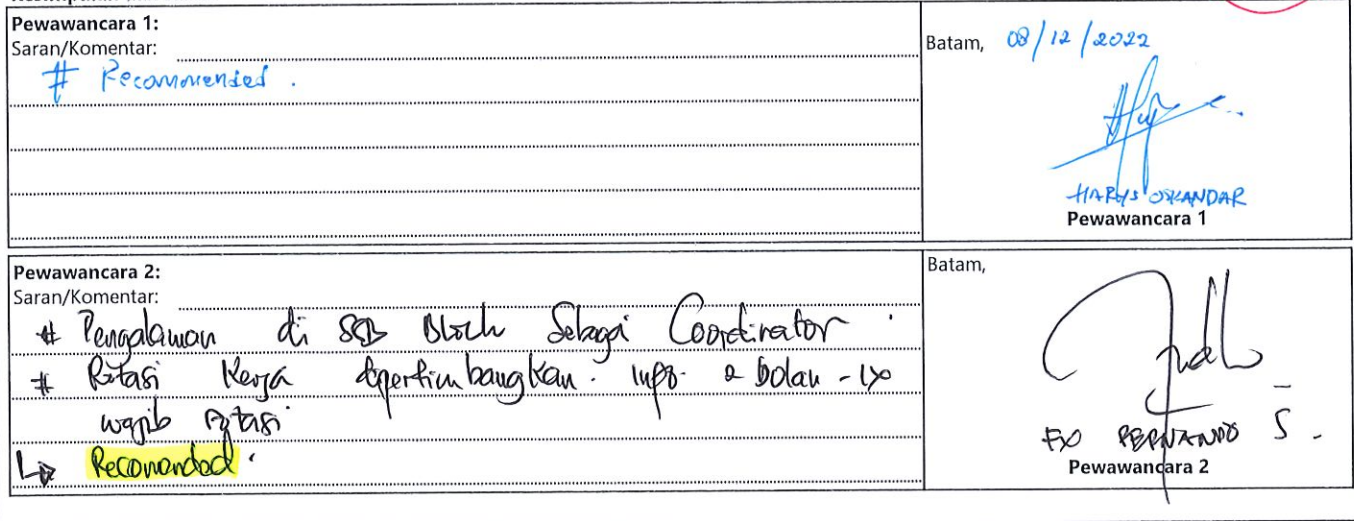 Pewawancara 1:
Saran/Komentar:
# Recommended.
Batam, 08/12/2022
HARYS OSKANDAR
Pewawancara 1
Pewawancara 2:
Saran/Komentar:
# Pengalaman di Block Sebagai Coordinator.
# Rotasi Kerja dipertimbangkan. info 2 bolan
wajib Rotasi
↳ Recomended.
Batam,
FX FERNANDO S.
Pewawancara 2